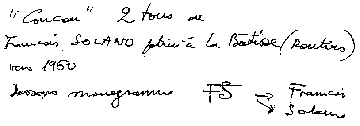 "Coucou" 2 tons de
Francois SOLANO à La Batisse (Routiers)
vers 1950
dessous monogramme FS → Francois
Solano